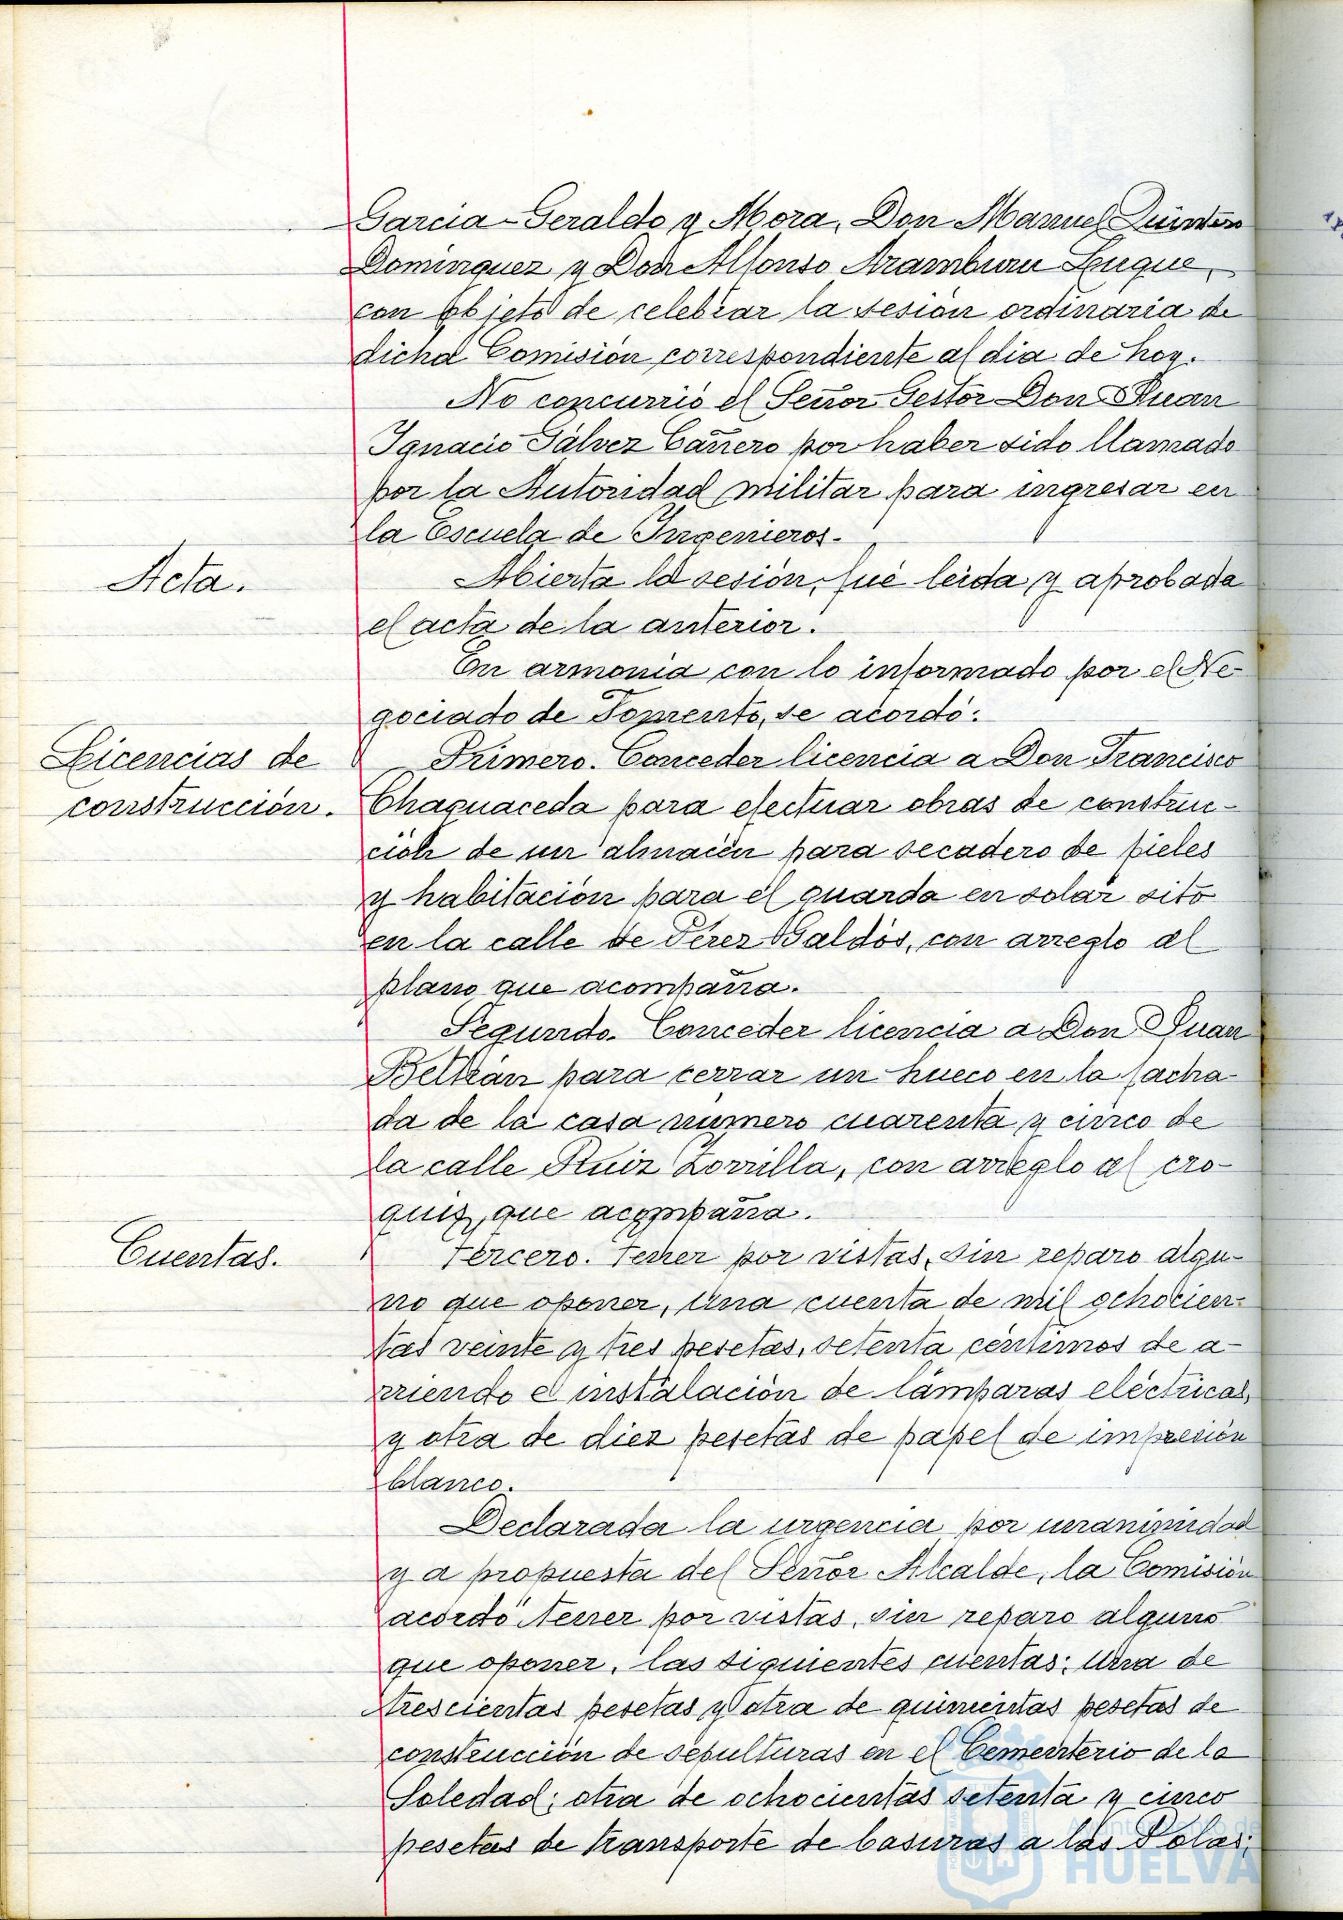 Garcia-Geraldo y Mora, Don Manuel Quintero
Dominguez y Don Alfonso Aramburu Luque,
con objeto de celebrar la sesión ordinaria de
dicha Comisión correspondiente al dia de hoy.
No concurrió el Señor Gestor Don Juan
Ignacio Gálvez Cañero por haber sido llamado
por la Autoridad militar para ingresar en
la Escuela de Ingenieros.
Acta.
Abierta la sesión, fué leida y aprobada
el acta de la anterior.
En armonia con lo informado por el Ne-
gociado de Fomento, se acordó:
Licencias de
construcción.
Primero. Conceder licencia a Don Francisco
Chaguaceda para efectuar obras de construc-
ción de un almacén para secadero de pieles
y habitación para el guarda en solar sito
en la calle de Pérez Galdós, con arreglo al
plano que acompaña.
Segundo. Conceder licencia a Don Juan
Beltrán para cerrar un hueco en la facha-
da de la casa número cuarenta y cinco de
la calle Ruiz Zorrilla, con arreglo al cro-
quis que acompaña.
Cuentas.
Tercero. Tener por vistas, sin reparo algu-
no que oponer, una cuenta de mil ochocien-
tas veinte y tres pesetas, setenta céntimos de a-
rriendo e instalación de lámparas eléctricas,
y otra de diez pesetas de papel de impresión
blanco.
Declarada la urgencia por unanimidad
y a propuesta del Señor Alcalde, la Comisión
acordó tener por vistas, sin reparo alguno
que oponer, las siguientes cuentas: Una de
trescientas pesetas y otra de quinientas pesetas de
construcción de sepulturas en el Cementerio de la
Soledad; otra de ochocientas setenta y cinco
pesetas de transporte de basuras a las Polas;
Ayuntamiento de
HUELVA